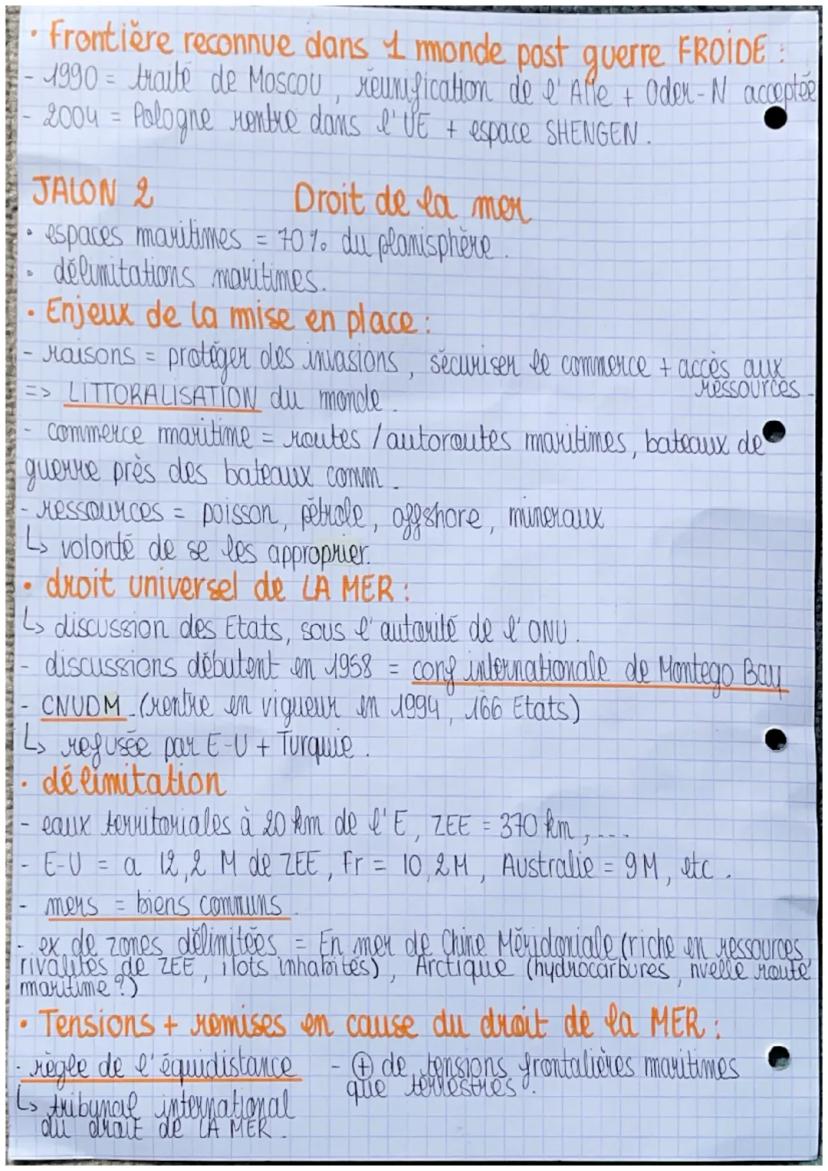 • Frontière reconnue dans 1 monde post guerre FROIDE :
- 1990 = traité de Moscou, réunification de l'Alle + Oder-N acceptée
- 2004 = Pologne rentre dans l'UE + espace SHENGEN.
JALON 2 Droit de la mer
• espaces maritimes = 70% du planisphère.
• délimitations maritimes.
• Enjeux de la mise en place :
- raisons = protéger des invasions, sécuriser le commerce + accès aux
ressources.
=> LITTORALISATION du monde.
- commerce maritime = routes / autoroutes maritimes, bateaux de
guerre près des bateaux comm.
- ressources = poisson, pétrole, offshore, mineraux
↳ volonté de se les approprier.
• droit universel de LA MER :
↳ discussion des Etats, sous l'autorité de l'ONU.
- discussions débutent en 1958 = conf internationale de Montego Bay
- CNUDM (rentre en vigueur en 1994, 166 Etats)
↳ refusée par E-U + Turquie.
• délimitation
- eaux territoriales à 20 km de l'E, ZEE = 370 km, ...
- E-U = a 12,2 M de ZEE, Fr = 10,2M, Australie = 9M, etc.
- mers = biens communs
- ex de zones délimitées = En mer de Chine Méridoniale (riche en ressources,
rivalités de ZEE, ilots inhabités), Arctique (hydrocarbures, nvelle route
maritime ?)
• Tensions + remises en cause du droit de la MER :
- règle de l'équidistance
↳ tribunal international
du droit de LA MER.
- ⊕ de tensions frontalières maritimes
que terrestres.